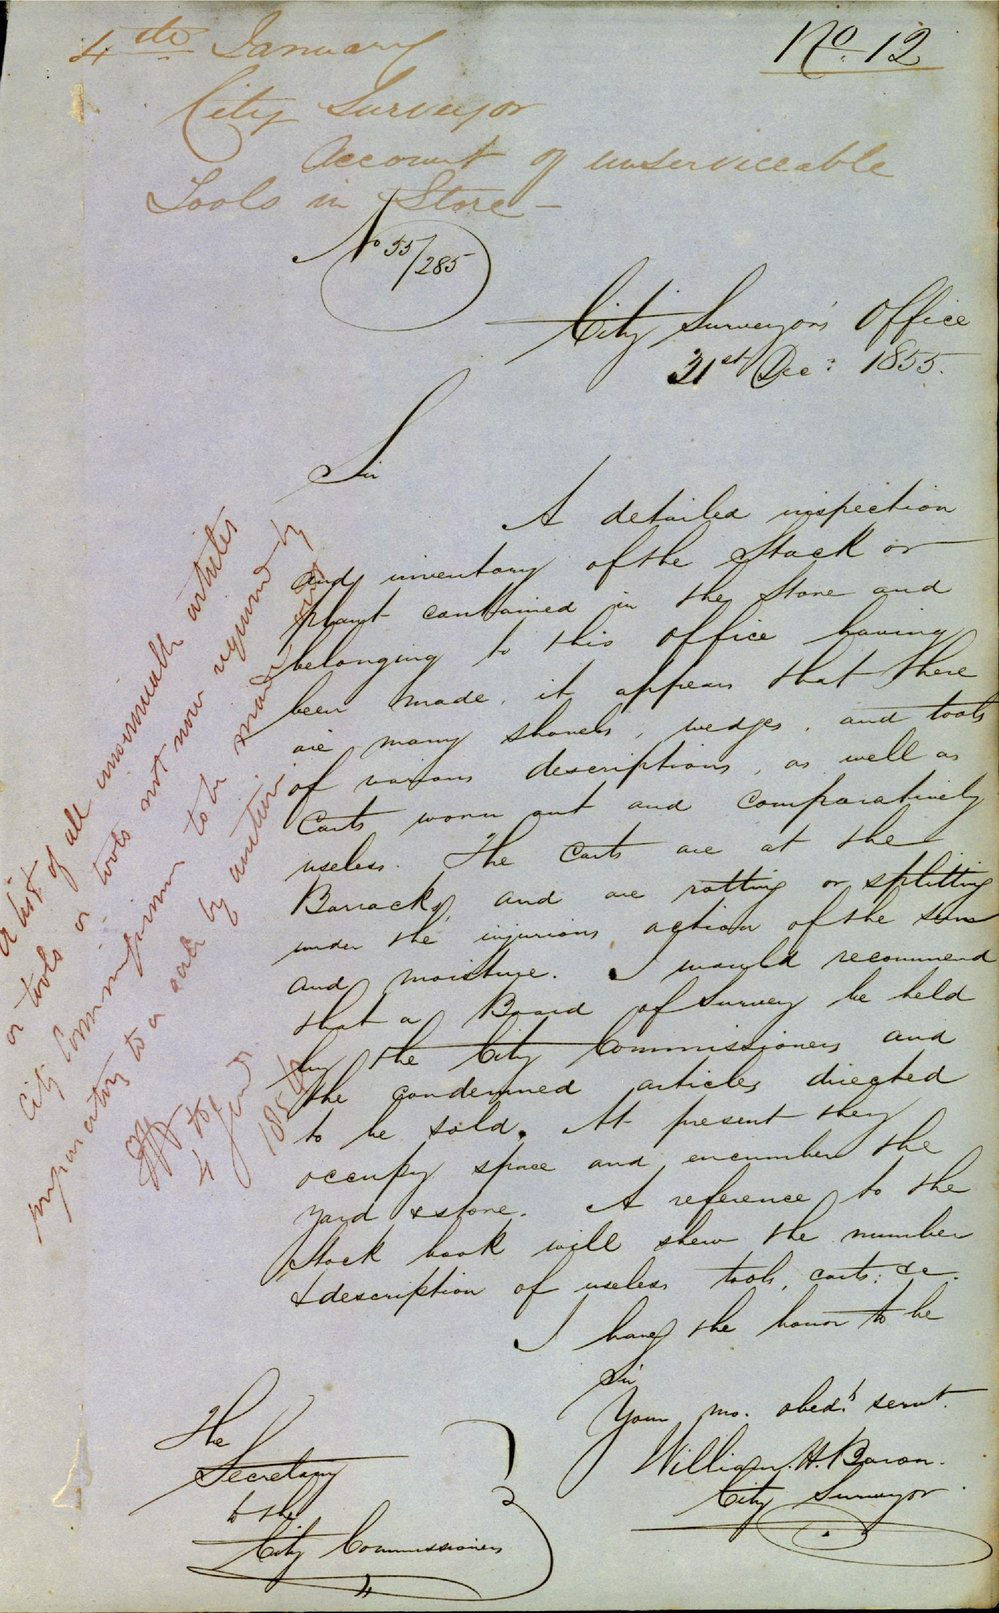 4th January
No. 12
City Surveyor
Account of unserviceable
Tools in Store -
No 55/285
City Surveyor's Office
31st Dec: 1855.
Sir
A detailed inspection
and inventory of the Stock or
plant contained in the Store and
belonging to this Office having
been made, it appears that there
are many shovels, wedges, and tools
of various descriptions, as well as
Carts worn out and comparatively
useless. The Carts are at the
Barracks, and are rotting or splitting
under the injurious action of the sun
and moisture. I would recommend
that a Board of Survey be held
by the City Commissioners and
the condemned articles directed
to be sold. At present they
occupy space and encumber the
yard & store. A reference to the
Stock book will shew the number
& description of useless tools, carts: &c.
I have the honor to be
Sir
Your mo. obedt. servt.
William. H. Baron.
City Surveyor
The
Secretary
to the
City Commissioners
A list of all articles
or tools or tools not now required by
City Commissioners to be made out
preparatory to a sale by auction
4th
Jany
1856